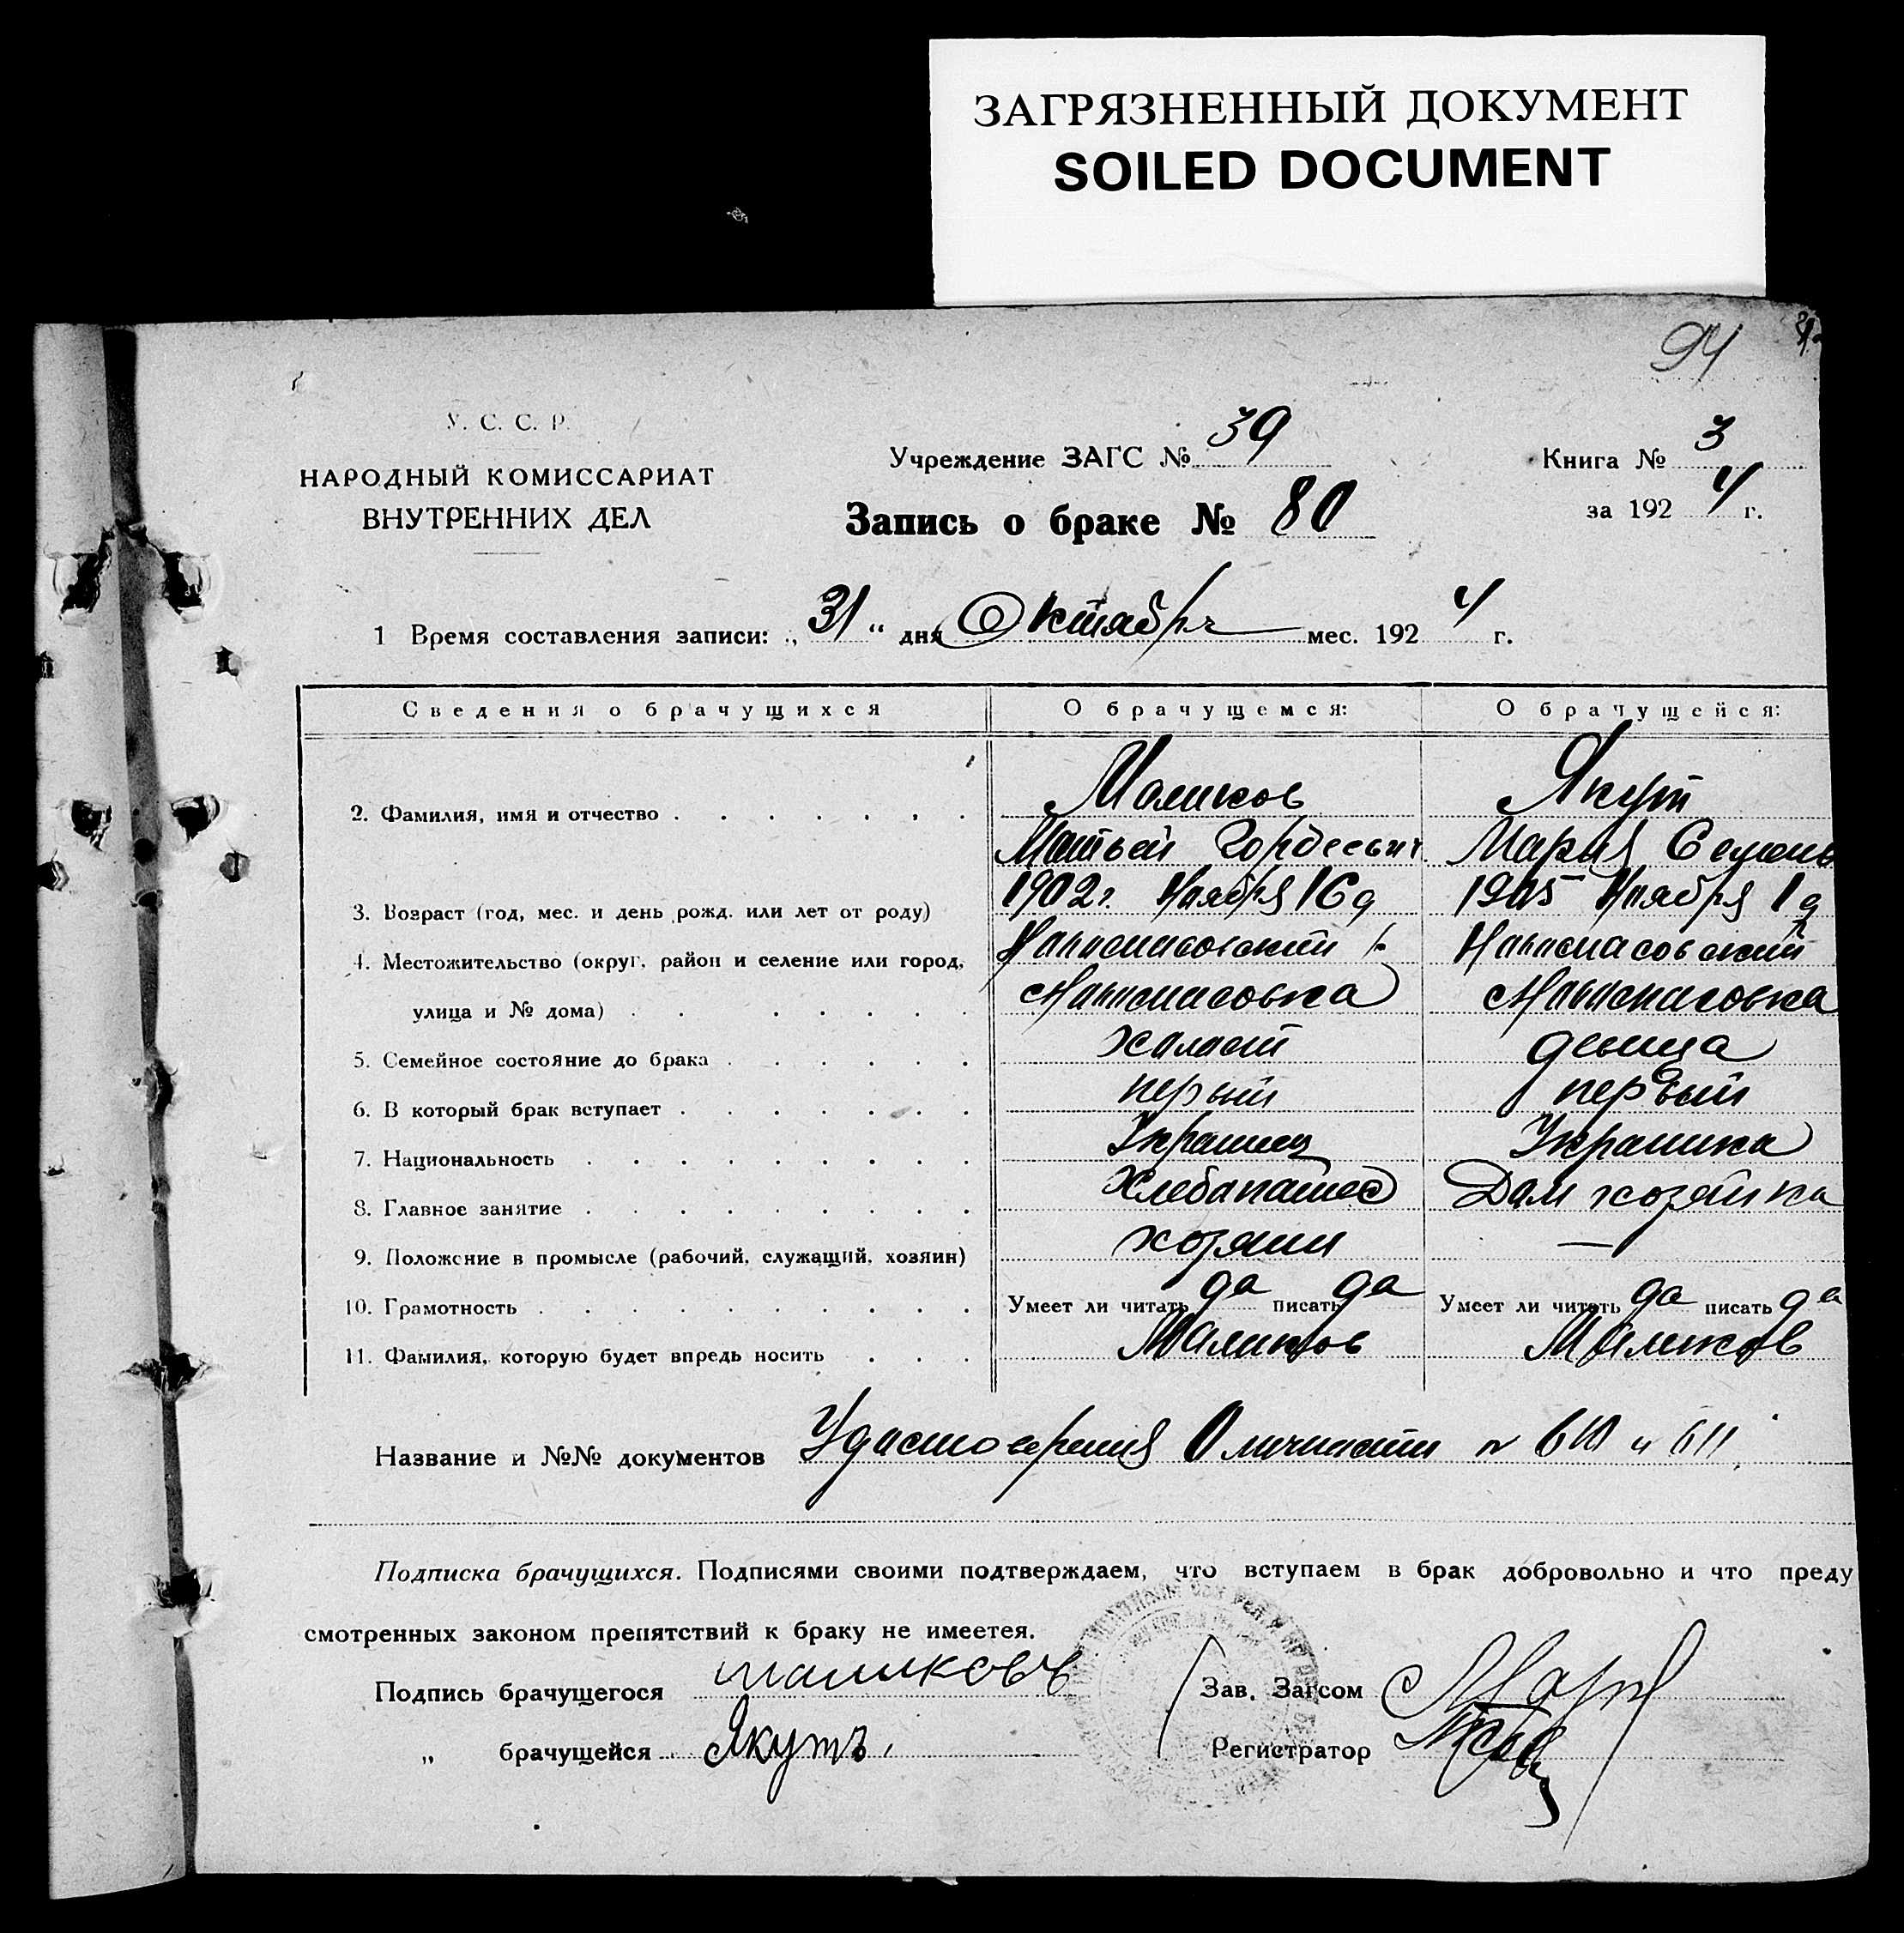 ЗАГРЯЗНЕННЫЙ ДОКУМЕНТ
SOILED DOCUMENT
94
У. С. С. Р.
НАРОДНЫЙ КОМИССАРИАТ
ВНУТРЕННИХ ДЕЛ
Учреждение ЗАГС № 39
Запись о браке № 80
Книга № 3
за 1924 г.
1 Время составления записи: „31“ дня Октября мес. 1924 г.
Сведения о брачущихся О брачущемся: О брачущейся:
Маликов Якут
2. Фамилия, имя и отчество
Матвей Гордеевич Мария Семень
3. Возраст (год, мес. и день рожд. или лет от роду) 1902 г. Ноября 16 д 1905 Ноября 1 д
4. Местожительство (округ, район и селение или город,
улица и № дома)
5. Семейное состояние до брака халаст девица
6. В который брак вступает первый первый
7. Национальность Украинец Украинка
8. Главное занятие Хлебапашец Дам хозяйка
9. Положение в промысле (рабочий, служащий, хозяин) хозяин —
10. Грамотность Умеет ли читать да писать да Умеет ли читать да писать да
11. Фамилия, которую будет впредь носить Маликов Маликов
Название и №№ документов Удастоверения Оличности № 610 и 611
Подписка брачущихся. Подписями своими подтверждаем, что вступаем в брак добровольно и что преду
смотренных законом препятствий к браку не имеетея.
Подпись брачущегося маликовъ Зав. Загсом
„ брачущейся Якутъ. Регистратор